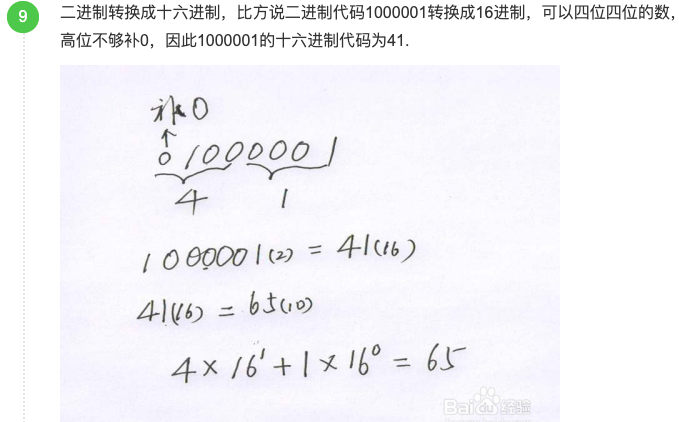 9
二进制转换成十六进制，比方说二进制代码1000001转换成16进制，可以四位四位的数，
高位不够补0，因此1000001的十六进制代码为41.
补0
↑
01000001
4 1
1000001(2) = 41(16)
41(16) = 65(10)
4×16¹+1×16⁰=65
Baidu经验